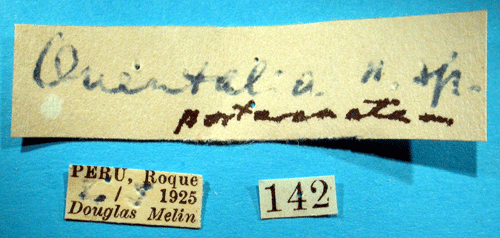 Orientalia n. sp.
PERU, Roque
/ 1925
Douglas Melin
142